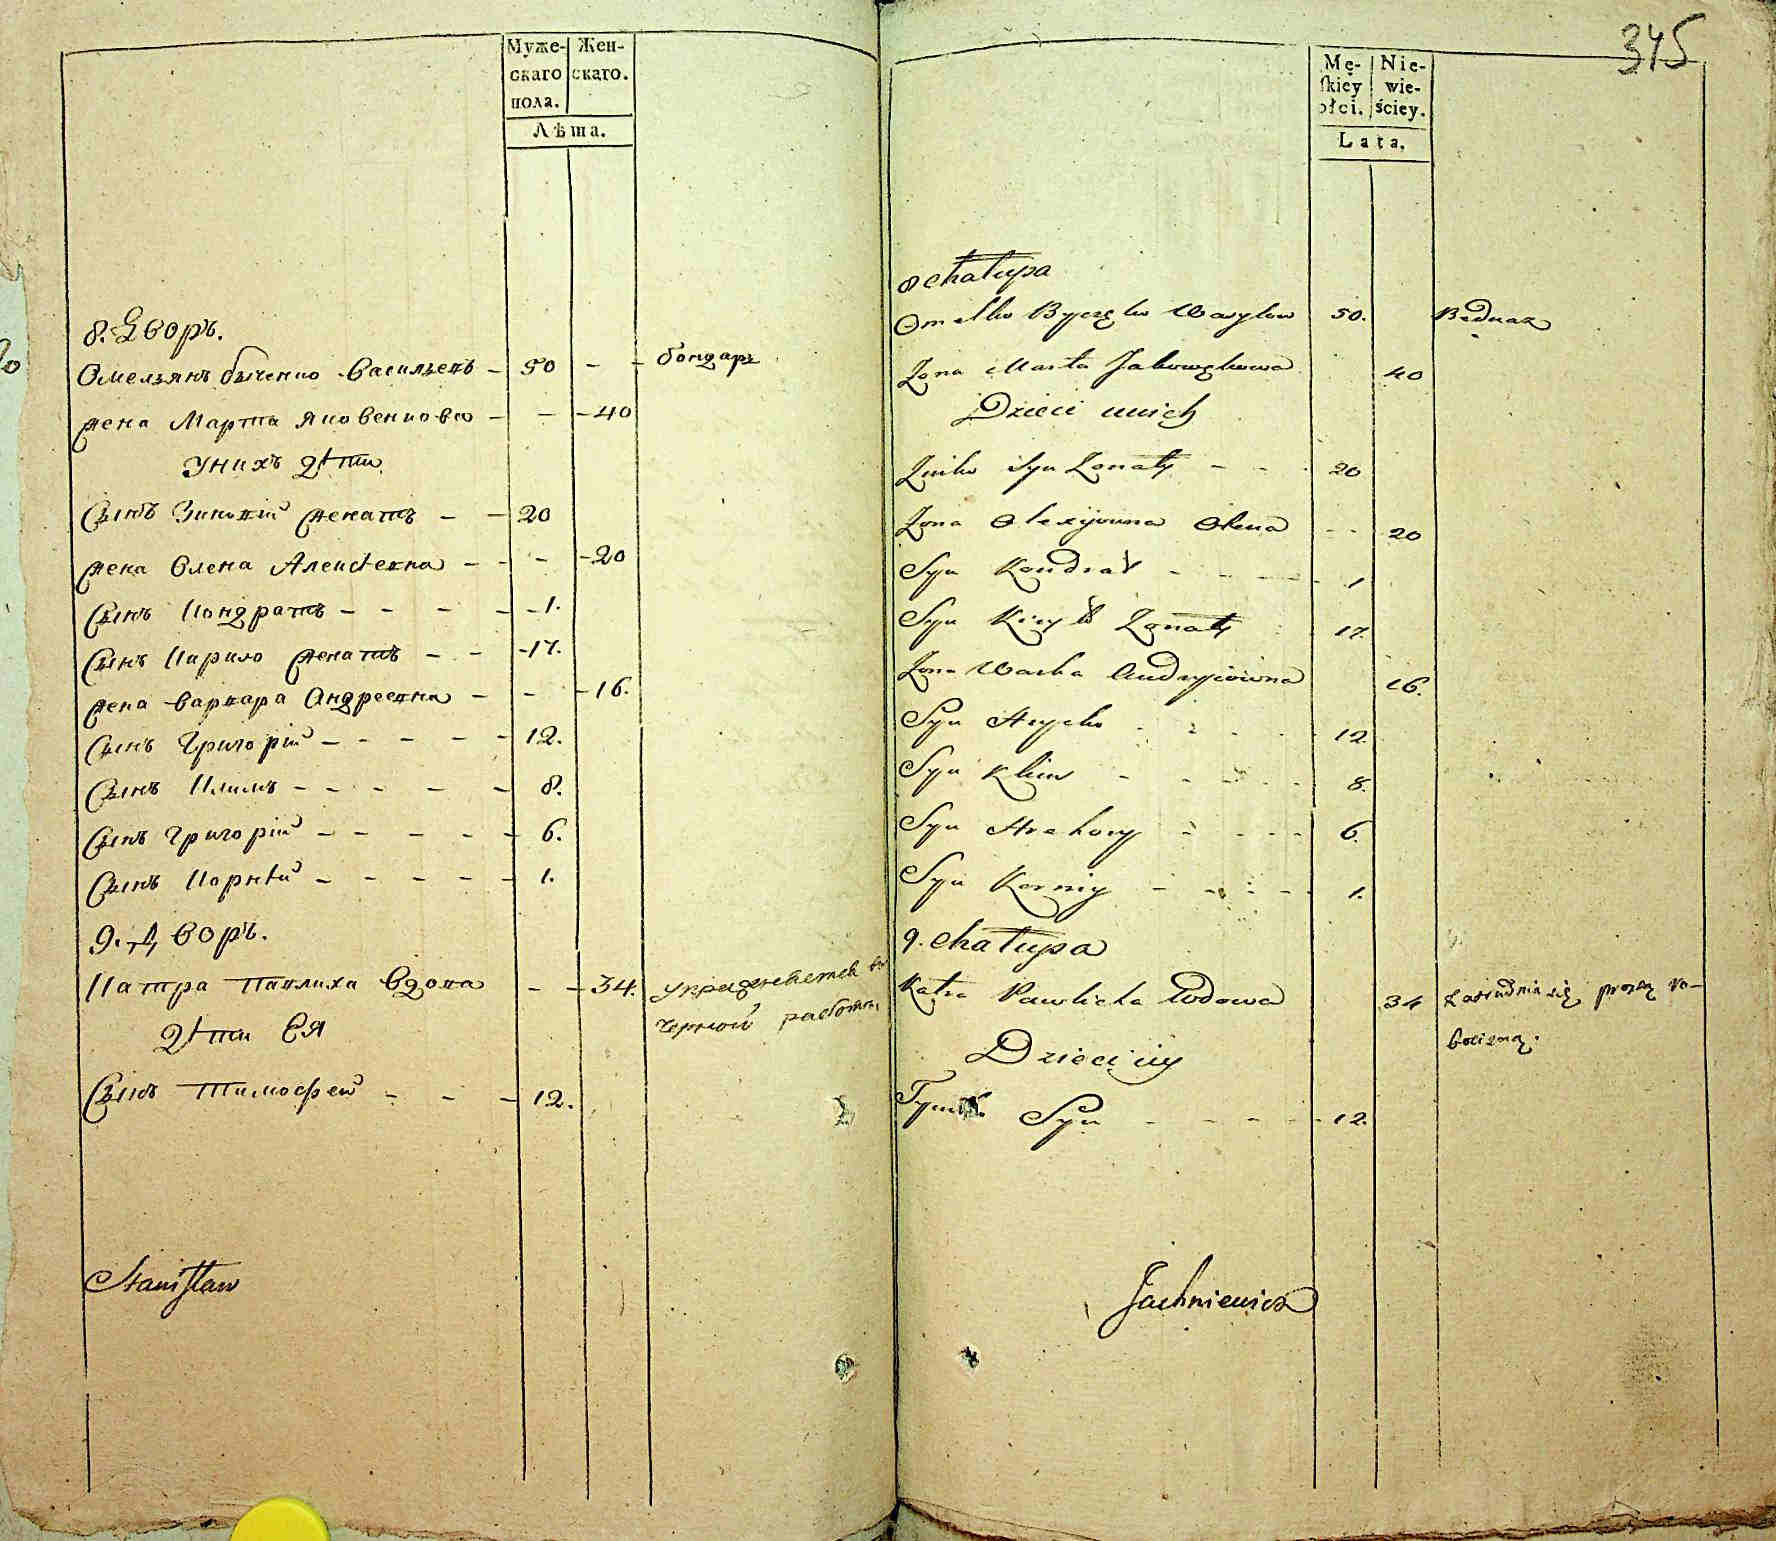 Муже- Жен-
скаго скаго.
пола.
Лѣта.
8. Дворъ.
Омельянъ Быченко Васильевъ - 50 - - бондарь
жена Марта Яковенкова - - - 40
у нихъ дѣти
Сынъ Зиновій женатъ - - 20
жена Олена Алексѣевна - - - - 20
Сынъ Кондратъ - - - - - 1.
Сынъ Кирило женатъ - - - 17.
жена Варвара Андреевна - - - 16.
Сынъ Григорій - - - - - 12.
Сынъ Климъ - - - - - 8.
Сынъ Григорій - - - - - 6.
Сынъ Корнѣй - - - - - 1.
9. Дворъ.
Катра Павлиха вдова - - 34.
черной работы
дѣти Ея
Сынъ Тимофей - - - 12.
Stanisław
345
Mę- Nie-
skiey wie-
płci. ściey.
Lata.
8 chałupa
Omelko Byczęko Wasylow 50. Bednaz
Zona Marta Jakowękowa 40
Dzieci unich
Zinko Syn Zonaty - - 20
Zona Olexijowna Olena - - 20
Syn Kondrat - - - - 1
Syn Kiryło Zonaty 17.
Zona Warka Andryiowna 16.
Syn Hrycko - - - - 12
Syn Klim - - - - 8.
Syn Hrehory - - - - 6.
Syn Korniy - - - - 1.
9. chałupa
Katra Pawlicha Wdowa 34 Zatrudnia się prostą ro-
bocizną.
Dzieci iiy
Syn - - - - 12.
Jachniewicz